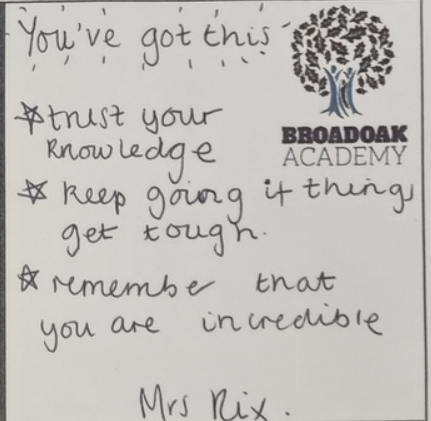 You've got this
BROADOAK
ACADEMY
☆ trust your
knowledge
☆ keep going if things
get tough.
☆ remember that
you are incredible
Mrs Rix.